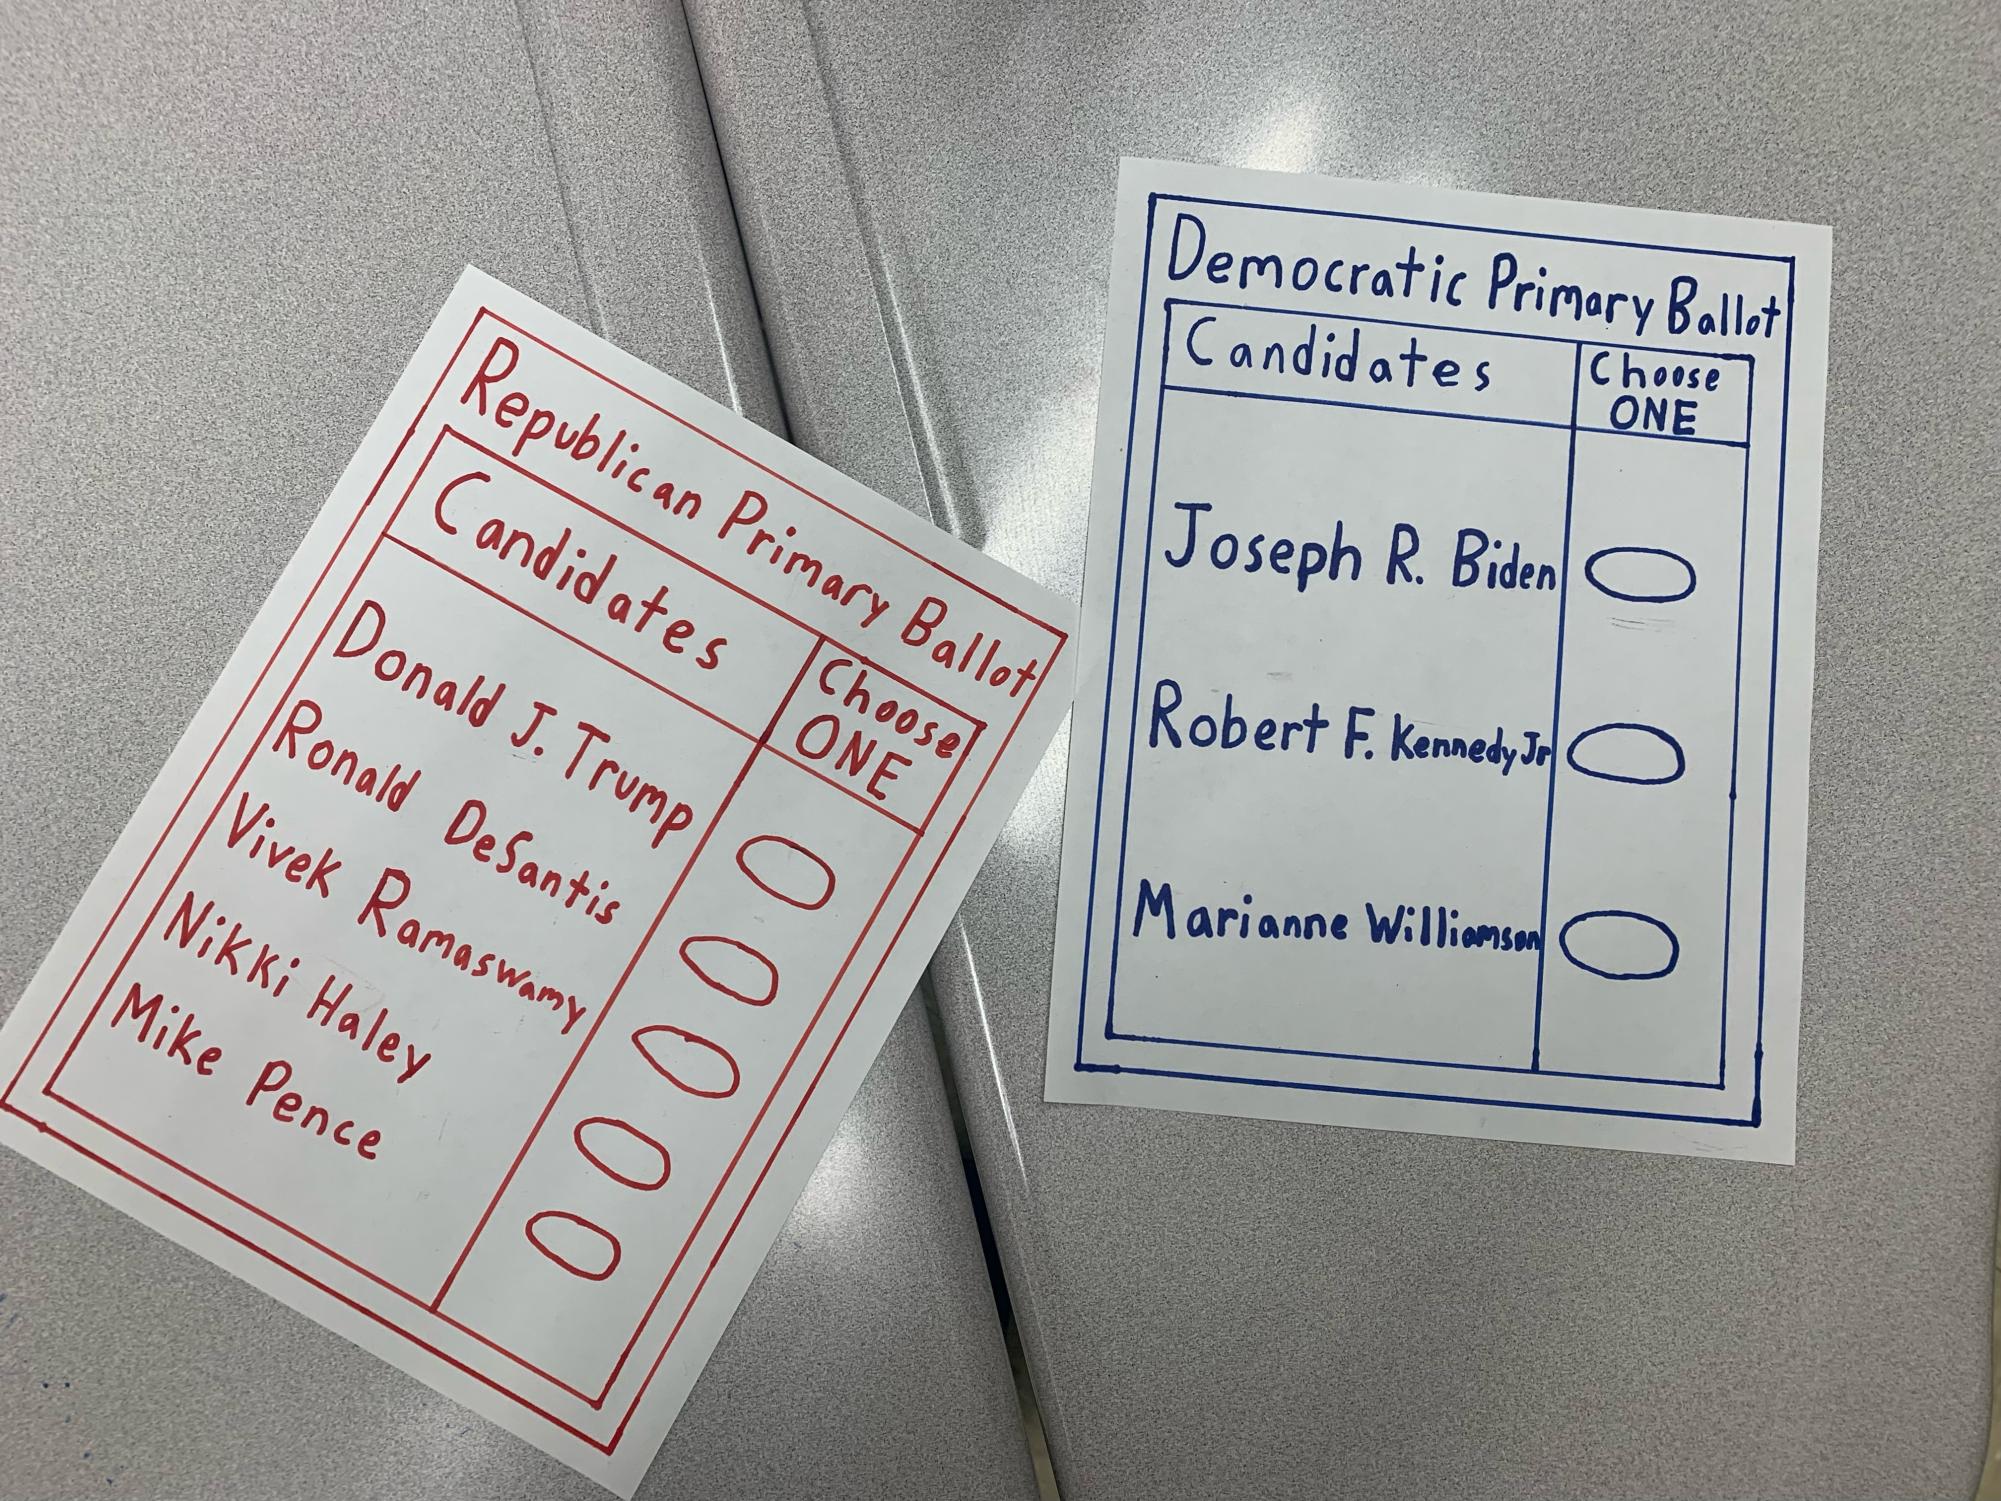 Republican Primary Ballot
Candidates
Choose
ONE
Donald J. Trump
Ronald DeSantis
Vivek Ramaswamy
Nikki Haley
Mike Pence
Democratic Primary Ballot
Candidates
Choose
ONE
Joseph R. Biden
Robert F. Kennedy Jr
Marianne Williamson